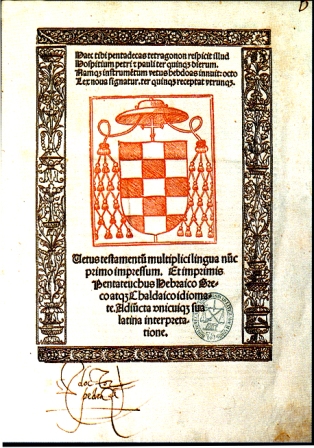 Haec tibi pentadecas tetragonon respicit illud
Hospitium petri ⁊ pauli ter quinqȝ dierum.
Namqȝ instrumētum vetus hebdoas innuit: octo
Lex noua signatur. ter quinqȝ receptat vtrunqȝ.
Uetus testamentū multiplici lingua nūc
primo impressum. Et imprimis
Pentateuchus Hebraico Gre-
co atqȝ Chaldaico idioma-
te. Adiūcta vnicuiqȝ sua
latina interpreta-
tione.